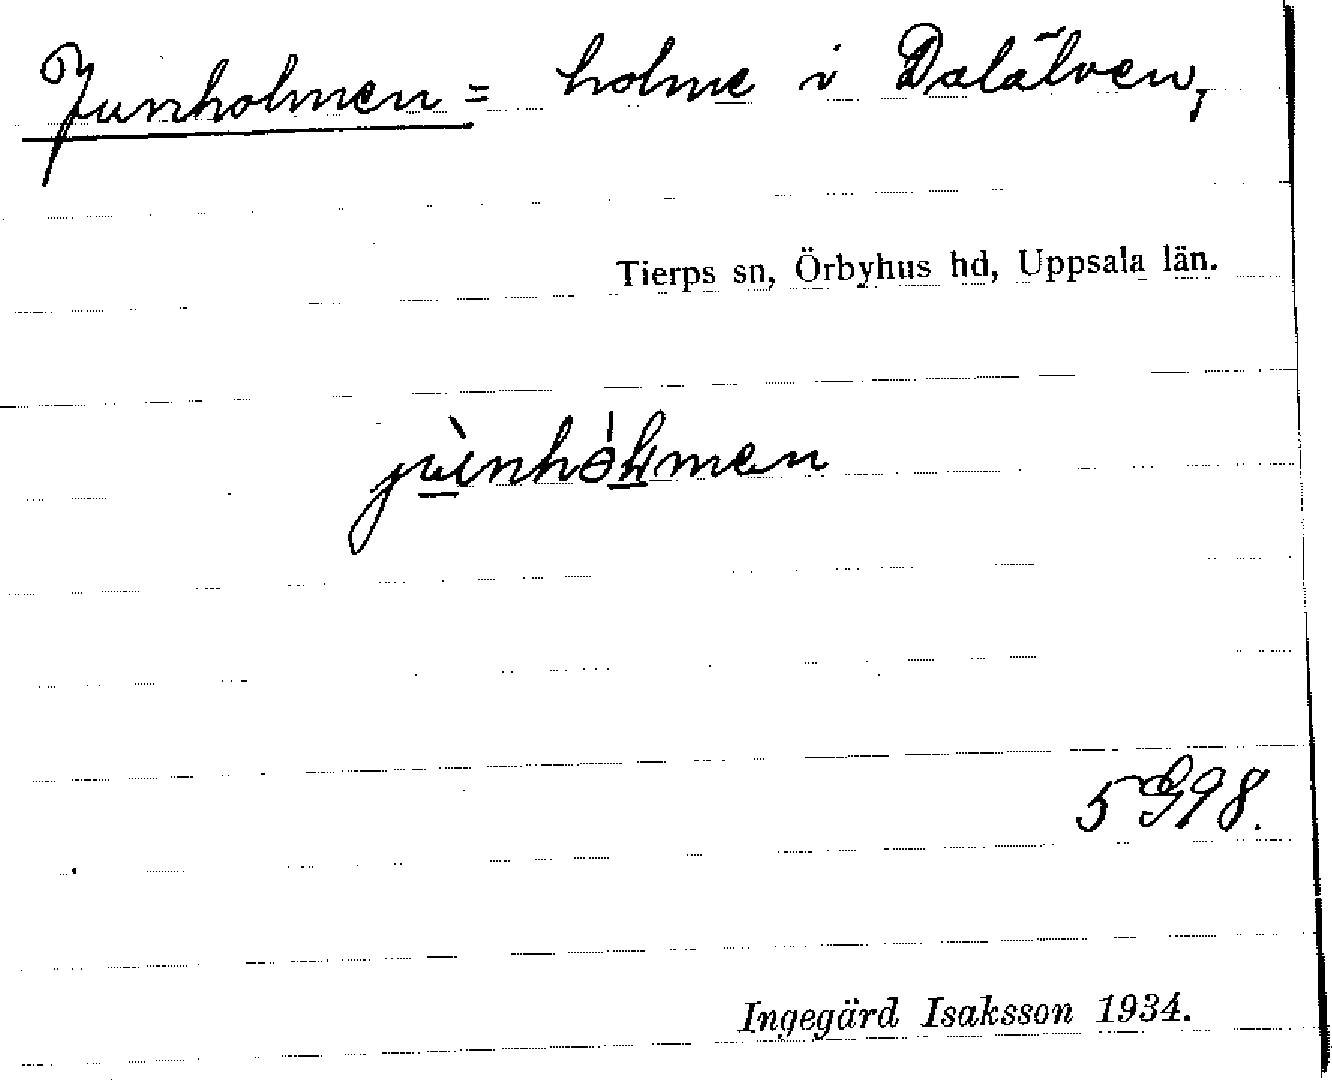 Junholmen = holme i Dalälven,
Tierps sn, Örbyhus hd, Uppsala län.
5 G 98.
Ingegärd Isaksson 1934.